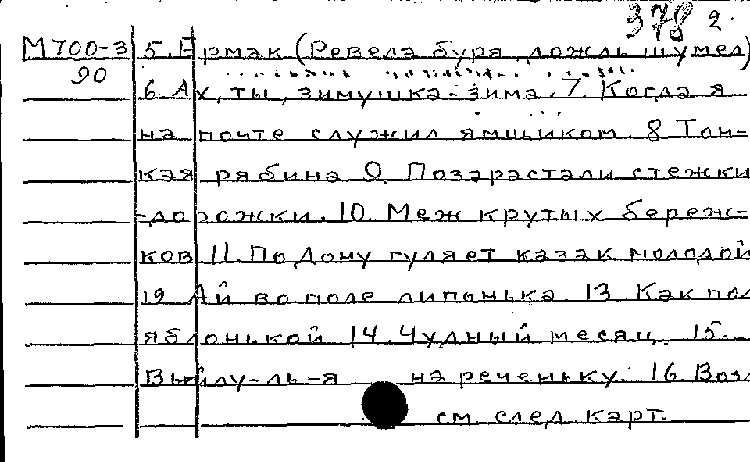 378 2.
М700-3 5. Ермак (Ревела буря, дождь шумел)
90
6. Ах, ты, зимушка-зима. 7. Когда я
на почте служил ямщиком. 8. Тон-
кая рябина 9. Позарастали стежки
-дорожки. 10. Меж крутых береж-
ков 11. По Дону гуляет казак молодой
12 Ай во поле липонька 13. Как под
яблонькой 14. Чудный месяц. 15.
Выйду-ль-я на реченьку. 16. Воз
см. след. карт.